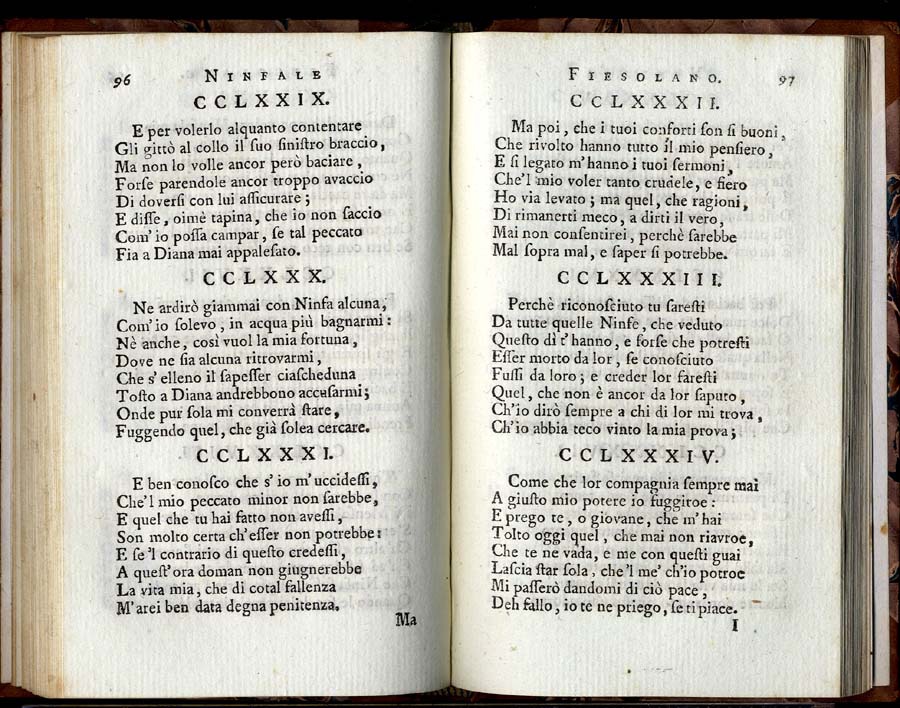 96 NINFALE
CCLXXIX.
E per volerlo alquanto contentare
Gli gittò al collo il ſuo ſiniſtro braccio,
Ma non lo volle ancor però baciare,
Forſe parendole ancor troppo avaccio
Di doverſi con lui aſſicurare;
E diſſe, oimè tapina, che io non ſaccio
Com' io poſſa campar, ſe tal peccato
Fia a Diana mai appaleſato.
CCLXXX.
Ne ardirò giammai con Ninfa alcuna,
Com' io ſolevo, in acqua più bagnarmi:
Nè anche, così vuol la mia fortuna,
Dove ne ſia alcuna ritrovarmi,
Che s' elleno il ſapeſſer ciaſcheduna
Toſto a Diana andrebbono accuſarmi;
Onde pur ſola mi converrà ſtare,
Fuggendo quel, che già ſolea cercare.
CCLXXXI.
E ben conoſco che s' io m' uccideſſi,
Che'l mio peccato minor non ſarebbe,
E quel che tu hai fatto non aveſſi,
Son molto certa ch' eſſer non potrebbe:
E ſe 'l contrario di queſto credeſſi,
A queſt' ora doman non giugnerebbe
La vita mia, che di cotal fallenza
M' arei ben data degna penitenza.
Ma
FIESOLANO. 97
CCLXXXII.
Ma poi, che i tuoi conforti ſon ſi buoni,
Che rivolto hanno tutto il mio penſiero,
E ſi legato m' hanno i tuoi ſermoni,
Che'l mio voler tanto crudele, e fiero
Ho via levato; ma quel, che ragioni,
Di rimanerti meco, a dirti il vero,
Mai non conſentirei, perchè ſarebbe
Mal ſopra mal, e ſaper ſi potrebbe.
CCLXXXIII.
Perchè riconoſciuto tu ſareſti
Da tutte quelle Ninfe, che veduto
Queſto dì t' hanno, e forſe che potreſti
Eſſer morto da lor, ſe conoſciuto
Fuſſi da loro; e creder lor fareſti
Quel, che non è ancor da lor ſaputo,
Ch'io dirò ſempre a chi di lor mi trova,
Ch'io abbia teco vinto la mia prova;
CCLXXXIV.
Come che lor compagnia ſempre mai
A giuſto mio potere io fuggiroe:
E prego te, o giovane, che m' hai
Tolto oggi quel, che mai non riavroe,
Che te ne vada, e me con queſti guai
Laſcia ſtar ſola, che 'l me' ch'io potroe
Mi paſſerò dandomi di ciò pace,
Deh fallo, io te ne priego, ſe ti piace.
I